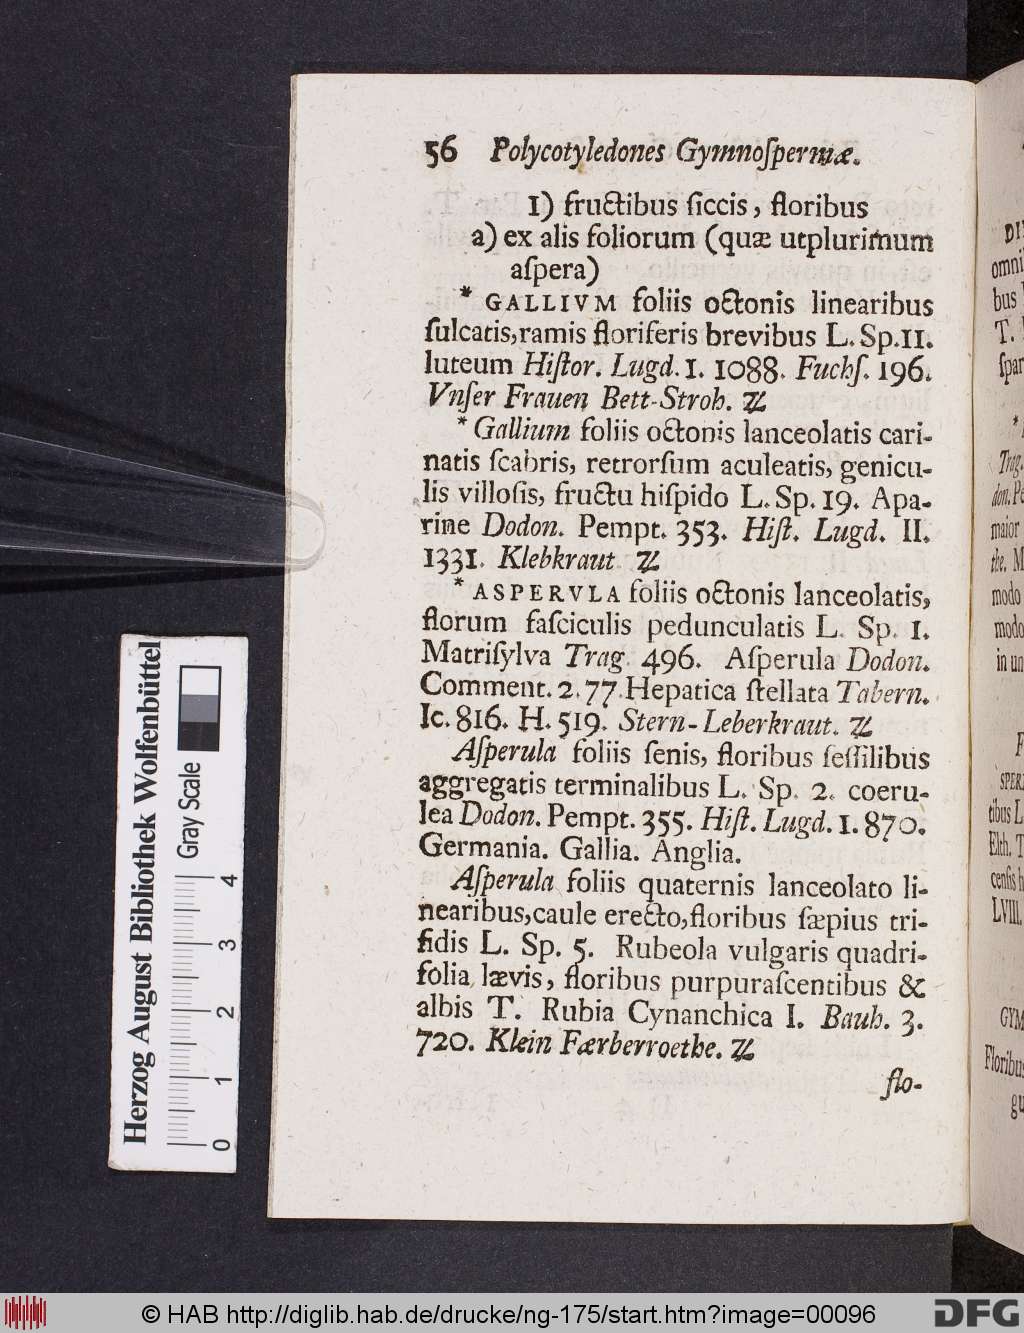 56 Polycotyledones Gymnoſpermæ.
1) fructibus ſiccis, floribus
a) ex alis foliorum (quæ utplurimum
aſpera)
* GALLIVM foliis octonis linearibus
ſulcatis, ramis floriferis brevibus L. Sp. 11.
luteum Hiſtor. Lugd. I. 1088. Fuchſ. 196.
Vnſer Frauen Bett-Stroh. ♃
* Gallium foliis octonis lanceolatis cari-
natis ſcabris, retrorſum aculeatis, genicu-
lis villoſis, fructu hiſpido L. Sp. 19. Apa-
rine Dodon. Pempt. 353. Hiſt. Lugd. II.
1331. Klebkraut ♃
* ASPERVLA foliis octonis lanceolatis,
florum faſciculis pedunculatis L. Sp. 1.
Matriſylva Trag. 496. Aſperula Dodon.
Comment. 2. 77. Hepatica ſtellata Tabern.
Ic. 816. H. 519. Stern-Leberkraut. ♃
Aſperula foliis ſenis, floribus ſeſſilibus
aggregatis terminalibus L. Sp. 2. coeru-
lea Dodon. Pempt. 355. Hiſt. Lugd. I. 870.
Germania. Gallia. Anglia.
Aſperula foliis quaternis lanceolato li-
nearibus, caule erecto, floribus ſæpius tri-
fidis L. Sp. 5. Rubeola vulgaris quadri-
folia lævis, floribus purpuraſcentibus &
albis T. Rubia Cynanchica I. Bauh. 3.
720. Klein Færberroethe. ♃
flo-
Herzog August Bibliothek Wolfenbüttel
Gray Scale
0 1 2 3 4
omni
bus
T.
ſpar
Trag.
don. Pe
maior
the. M
modo
modo
in un
tibus L
Elth. T
cenſis h
LVIII.
GYM
Floribus
gu
© HAB http://diglib.hab.de/drucke/ng-175/start.htm?image=00096
DFG